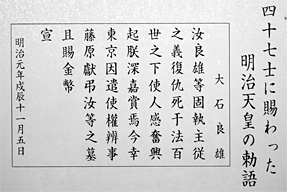 四十七士に賜わった
明治天皇の勅語
大石良雄
汝良雄等固執主従
之義復仇死于法百
世之下使人感奮興
起朕深嘉賞焉今幸
東京因遣使權辨事
藤原獻弔汝等之墓
且賜金幣
宣
明治元年戊辰十一月五日